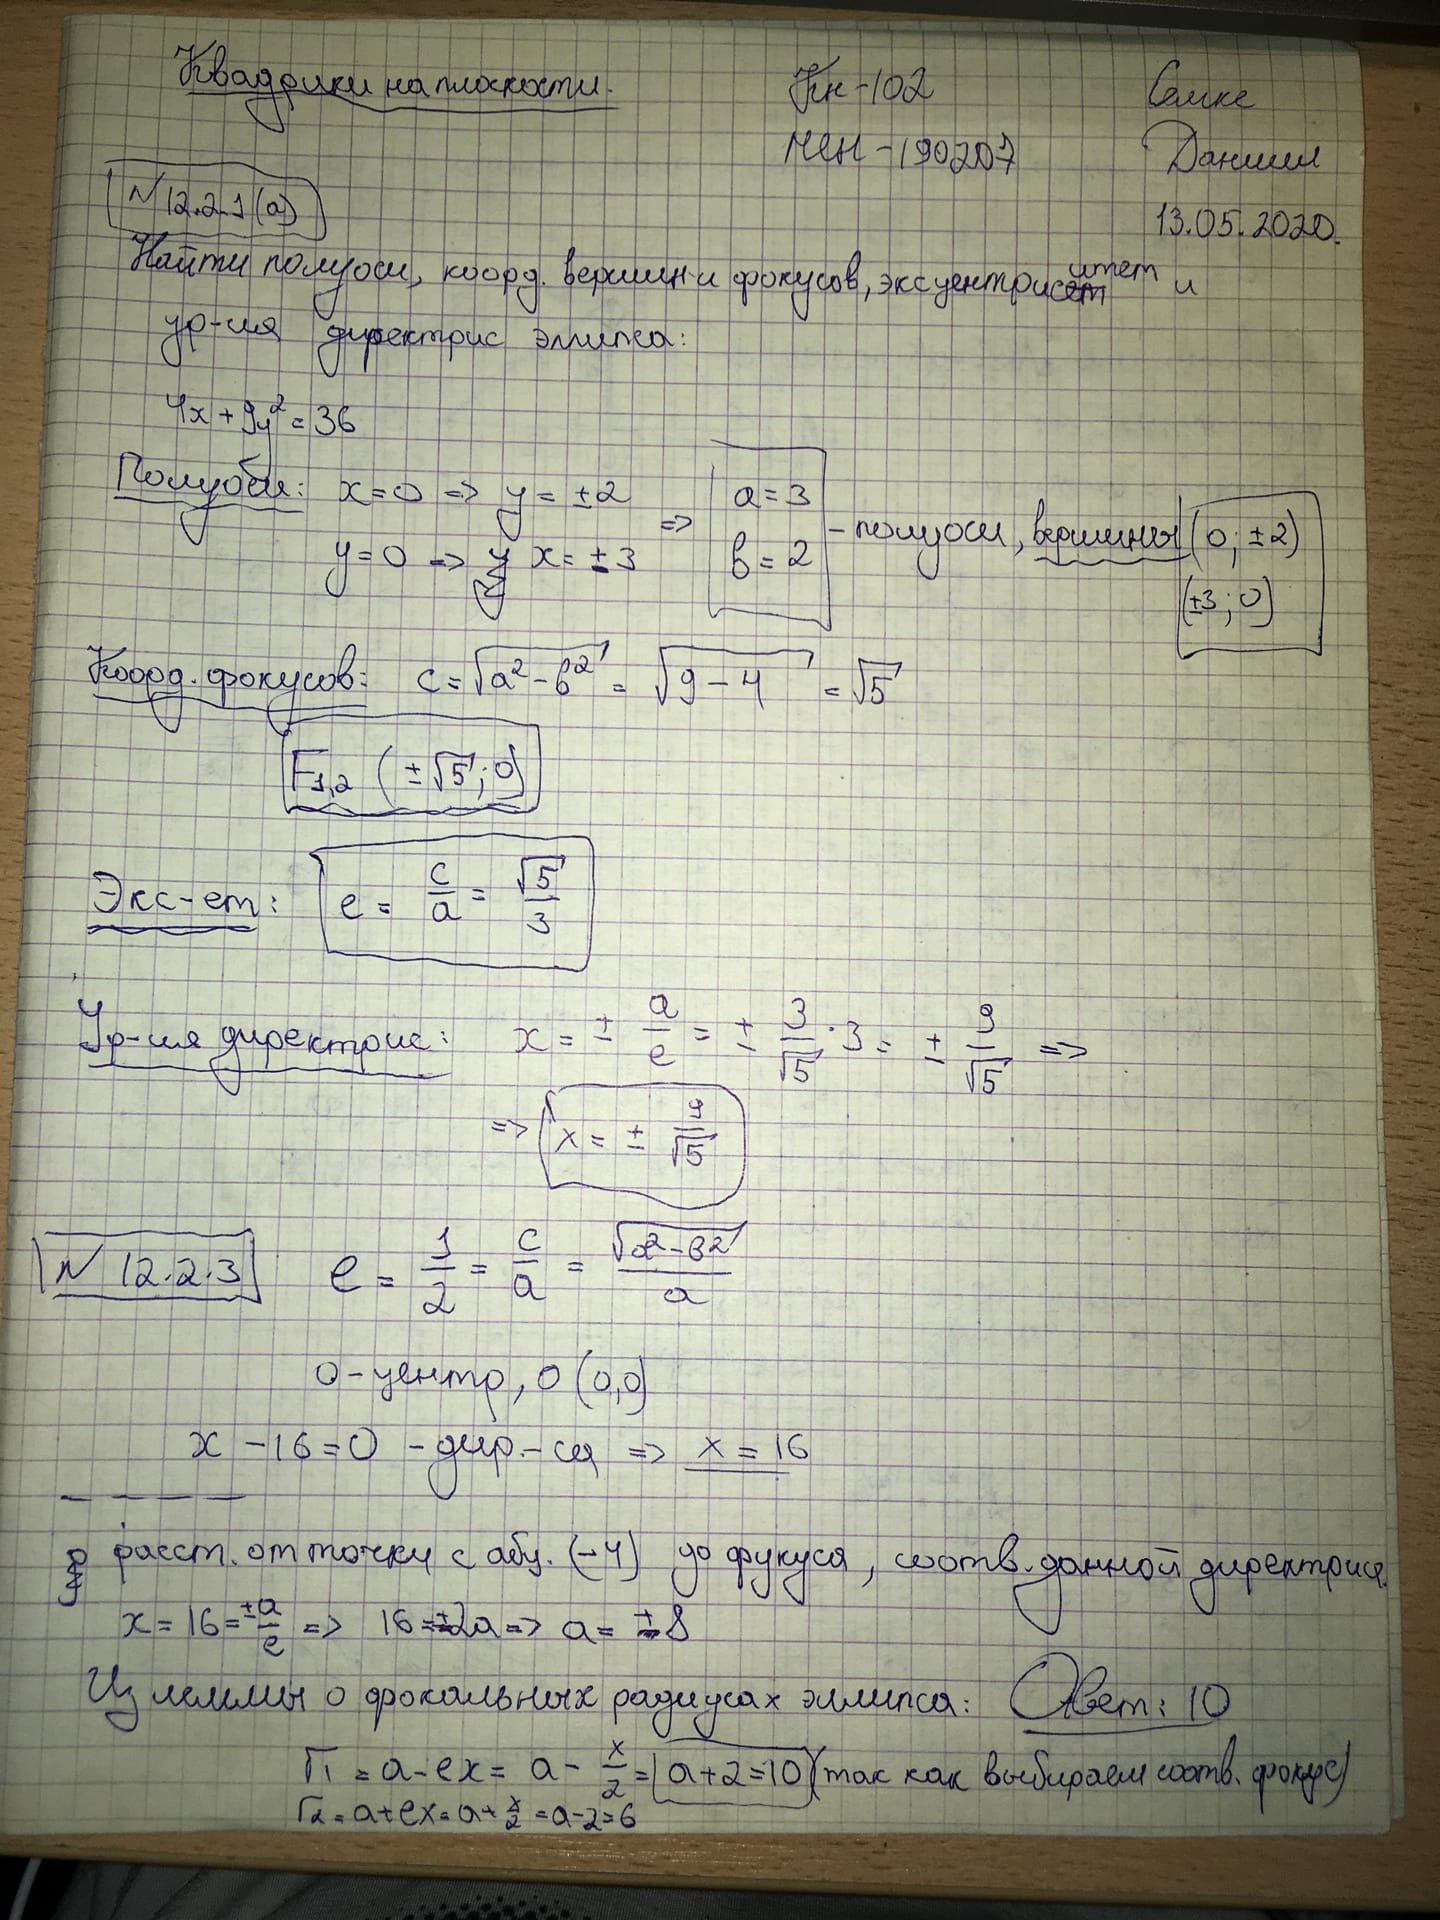 Квадрики на плоскости.
Кн-102
Семке
МЕН-190207
Даниил
13.05.2020.
№12.2.1(а)
Найти полуоси, коорд. вершин и фокусов, эксцентриситет и
ур-ия директрис эллипса:
4x + 9y² = 36
Полуоси: x=0 => y = ±2
y=0 => x = ±3
=> a=3
b=2
- полуоси, вершины (0; ±2)
(±3; 0)
Коорд. фокусов: c = √(a²-b²) = √(9-4) = √5
F₁,₂ (±√5; 0)
Экс-ет: e = c/a = √5/3
Ур-ия директрис: x = ± a/e = ± 3/√5 · 3 = ± 9/√5 =>
=> x = ± 9/√5
№ 12.2.3 e = 1/2 = c/a = √(a²-b²)/a
О-центр, О (0,0)
x - 16 = 0 - дир.-са => x = 16
расст. от точку с абц. (-4) до фукуса, соотв. данной директрисе.
x = 16 = ±a/e => 16 = ±2a => a = ±8
Из леммы о фокальных радиусах эллипса: Ответ: 10
Г₁ = a - ex = a - x/2 = a+2=10 (так как выбираем соотв. фокус)
Г₂ = a+ex = a + x/2 = a-2=6